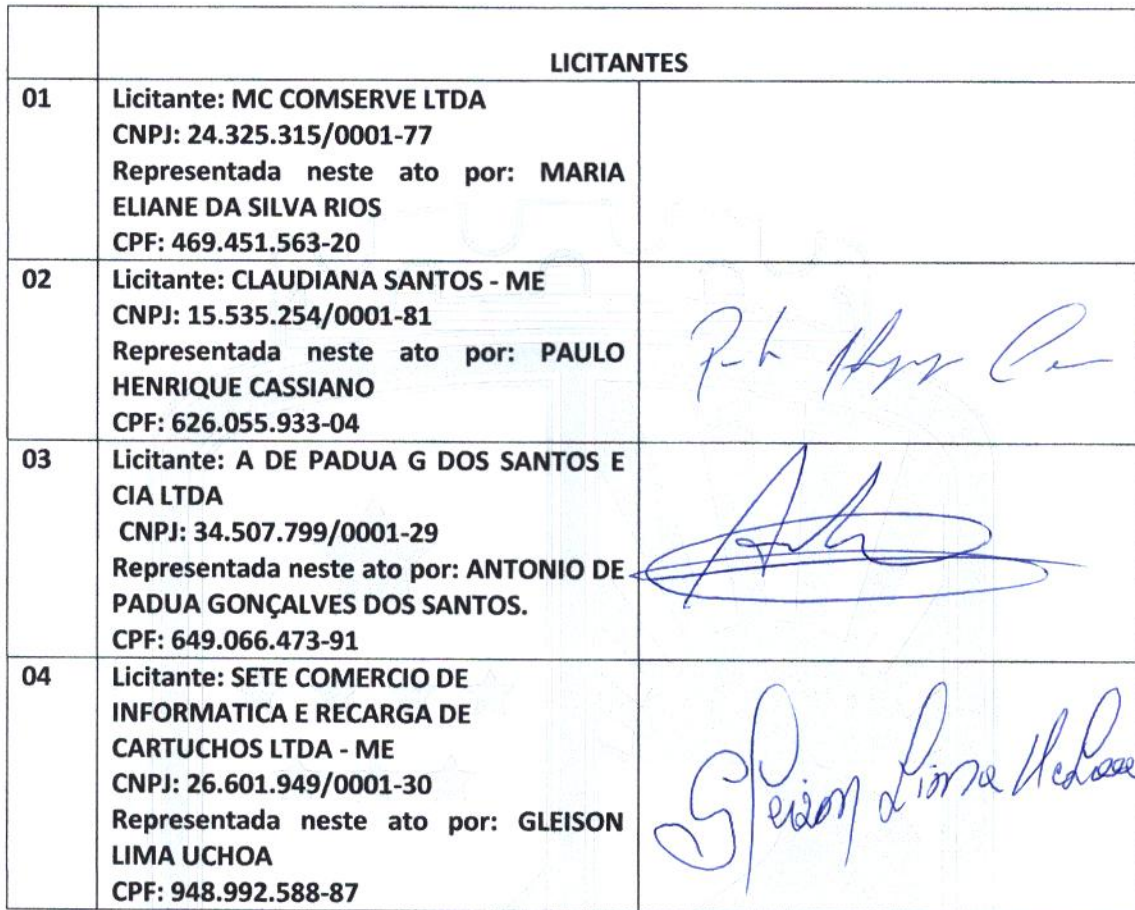 LICITANTES
01
Licitante: MC COMSERVE LTDA
CNPJ: 24.325.315/0001-77
Representada neste ato por: MARIA
ELIANE DA SILVA RIOS
CPF: 469.451.563-20
02
Licitante: CLAUDIANA SANTOS - ME
CNPJ: 15.535.254/0001-81
Representada neste ato por: PAULO
HENRIQUE CASSIANO
CPF: 626.055.933-04
03
Licitante: A DE PADUA G DOS SANTOS E
CIA LTDA
CNPJ: 34.507.799/0001-29
Representada neste ato por: ANTONIO DE
PADUA GONÇALVES DOS SANTOS.
CPF: 649.066.473-91
04
Licitante: SETE COMERCIO DE
INFORMATICA E RECARGA DE
CARTUCHOS LTDA - ME
CNPJ: 26.601.949/0001-30
Representada neste ato por: GLEISON
LIMA UCHOA
CPF: 948.992.588-87
Gleison Lima Uchoa